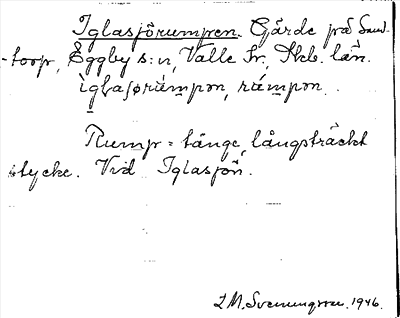 Iglasjörumpen. Gärde på Sand-
torp, Eggby s:n, Valle hr, Skb. län.
ìglaʃørúmpon, rúmpon.
Rump = tånge, långsträckt
stycke. Vid Iglasjön.
L M. Svenungsson. 1946.